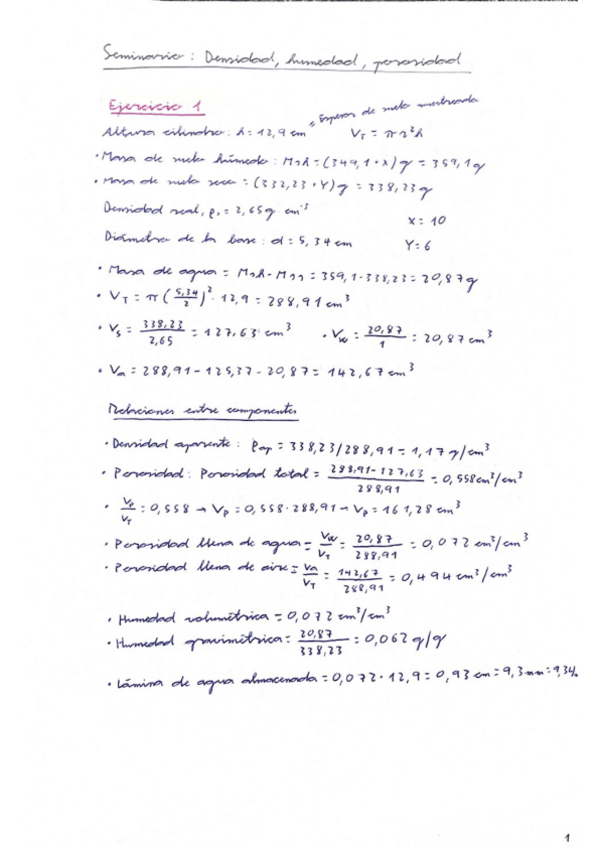 Seminario: Densidad, humedad, porosidad
Ejercicio 1
Altura cilindro: h = 12,9 cm = Espesor de suelo muestreado V_T = πr²h
• Masa de suelo húmedo: Msh = (349,1+X)g = 359,1g
• Masa de suelo seco = (332,23+Y)g = 338,23g
Densidad real, ρr = 2,65g cm⁻³
X = 10
Diámetro de la base: d = 5,34 cm Y = 6
• Masa de agua = Msh - Mss = 359,1 - 338,23 = 20,87g
• V_T = π(5,34/2)² · 12,9 = 288,91 cm³
• Vs = 338,23/2,65 = 127,63 cm³ • Vw = 20,87/1 = 20,87 cm³
• Va = 288,91 - 125,37 - 20,87 = 142,67 cm³
Relaciones entre componentes
• Densidad aparente: ρap = 338,23/288,91 = 1,17 g/cm³
• Porosidad: Porosidad total = 288,91-127,63/288,91 = 0,558 cm³/cm³
• Vp/V_T = 0,558 → Vp = 0,558 · 288,91 → Vp = 161,28 cm³
• Porosidad llena de agua = Vw/V_T = 20,87/288,91 = 0,072 cm³/cm³
• Porosidad llena de aire = Va/V_T = 142,67/288,91 = 0,494 cm³/cm³
• Humedad volumétrica = 0,072 cm³/cm³
• Humedad gravimétrica = 20,87/338,23 = 0,062 g/g
• Lámina de agua almacenada = 0,072 · 12,9 = 0,93 cm = 9,3 mm = 9,3
1